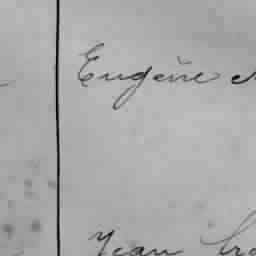 Eugène
Jean